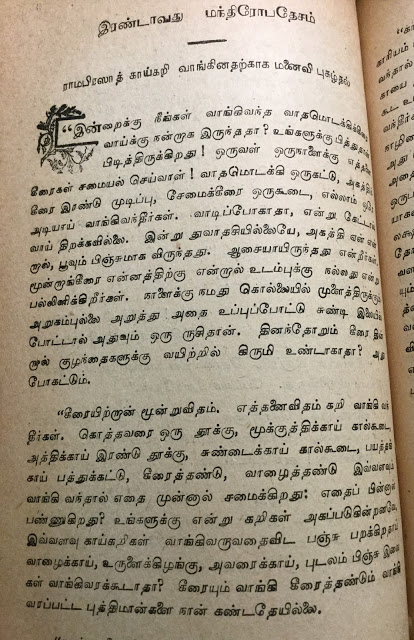 இரண்டாவது மந்திரோபதேசம்
ராமபிரஸாத் காய்கறி வாங்கினதற்காக மனைவி புகழ்தல்
“இன்றைக்கு நீங்கள் வாங்கிவந்த வாதமொடக்கிக்கீரை
வாய்க்கு நன்றாக இருந்ததா? உங்களுக்கு பித்து
பிடித்திருக்கிறது! ஒருவள் ஒருநாளைக்கு எத்தனை
கீரைகள் சமையல் செய்வாள்! வாதமொடக்கி ஒருகட்டு, அகத்திக்
கீரை இரண்டு முடிப்பு, சேமைக்கீரை ஒருகூடை, எல்லாம்
அடியாய் வாங்கிவந்தீர்கள். வாடிப்போகாதா, என்று கேட்டால்
வாய் திறக்கவில்லை. இன்று துவாதசியில்லையே, அகத்தி ஏன் என்
றால், பூவும் பிஞ்சுமாக விருந்தது. ஆசையாயிருந்தது என்கிறீர்கள்
மூன்றுங்கீரை என்னத்திற்கு என்றால் உடம்புக்கு நல்லது என்று
பல்லிளிக்கிறீர்கள். நாளைக்கு நமது கொல்லையில் முளைத்திருக்கும்
அறுகம்புல்லை அறுத்து அதை உப்புப்போட்டு சுண்டி இலையில்
போட்டால் அதுவும் ஒரு ருசிதான். தினந்தோறும் கீரை தின்
றால் குழந்தைகளுக்கு வயிற்றில் கிருமி உண்டாகாதா? அது
போகட்டும்.
“கீரையிற்றான் மூன்றுவிதம். எத்தனைவிதம் கறி வாங்கி வந்
தீர்கள். கொத்தவரை ஒரு தூக்கு, மூக்குத்திக்காய் கால்கூடை,
அத்திக்காய் இரண்டு தூக்கு, சுண்டைக்காய் கால்கூடை, பயத்தங்
காய் பத்துக்கட்டு, கீரைத்தண்டு, வாழைத்தண்டு இவ்வளவும்
வாங்கி வந்தால் எதை முன்னால் சமைக்கிறது: எதைப் பின்னால்
பண்ணுகிறது? உங்களுக்கு என்று கறிகள் அகப்படுகின்றனவே,
இவ்வளவு காய்கறிகள் வாங்கிவருவதைவிட பஞ்சு பறக்கிறதாய்
வாழைக்காய், உருளைக்கிழங்கு, அவரைக்காய், புடலம் பிஞ்சு இவை
கள் வாங்கிவரக்கூடாதா? கீரையும் வாங்கி கீரைத்தண்டும் வாங்கி
வரப்பட்ட புத்திமான்களை நான் கண்டதேயில்லை.